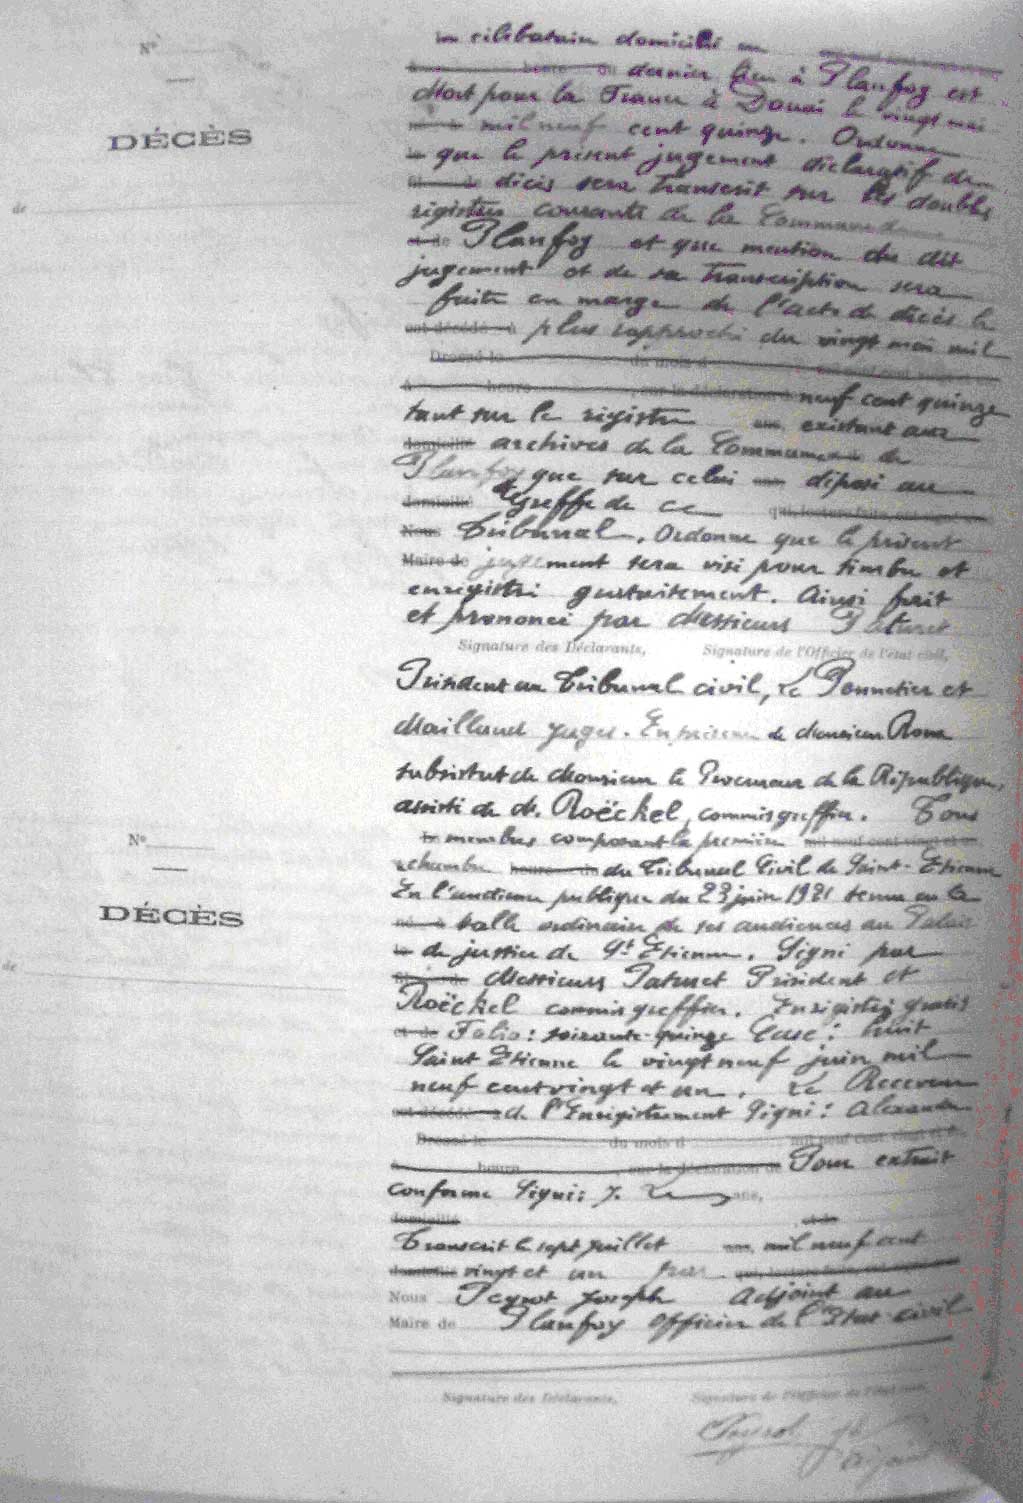 N°
célibataire domicilié en
heure du dernier lieu à Planfoy est
DÉCÈS
Mort pour la France à Douai le vingt mai
mil neuf cent quinze. Ordonne
que le présent jugement déclaratif de
de
décès sera transcrit sur les doubles
registres courants de la Commune de
et de Planfoy et que mention du dit
jugement et de sa transcription sera
faite en marge de l'acte de décès le
est décédé à plus rapproché du vingt mai mil
Dressé le du mois d
heure , sur la déclaration de neuf cent quinze
tant sur le registre existant aux
domicilié archives de la Commune de
Planfoy que sur celui déposé au
domicilié Greffe de ce qui, lecture faite
Nous Tribunal. Ordonne que le présent
Maire de jugement sera visé pour timbre et
enregistré gratuitement. Ainsi fait
et prononcé par Messieurs Paturet
Signature des Déclarants, Signature de l'Officier de l'état civil,
Président au Tribunal civil, Le Ponnetier et
Mailland Juges. En présence de Monsieur Roux
substitut de Monsieur le Procureur de la République,
assisté de M. Roëckel, commis greffier. Tous
N°
membres composant la première mil neuf cent vingt et
chambre heure du du Tribunal Civil de Saint-Etienne
En l'audience publique du 23 juin 1921 tenue en la
DÉCÈS
né à salle ordinaire de ses audiences au Palais
le de justice de St Etienne. Signé par
de
Messieurs Paturet Président et
Roëckel commis greffier. Enregistré gratis
et de Folio: soixante-quinze Case: huit
Saint Etienne le vingt neuf juin mil
neuf cent vingt et un. Le Receveur
est décédé à de l'Enregistrement Signé: Alexandre
Dressé le du mois d mil neuf cent vingt et
à heure , sur la déclaration de Pour extrait
conforme Signé: J. ans,
domicilié et de
Transcrit le sept juillet mil neuf cent
domicilié vingt et un par qui, lecture faite
Nous Peyrot Joseph Adjoint au
Maire de Planfoy Officier de l'Etat civil
Signature des Déclarants, Signature de l'Officier de l'état civil,
Peyrot Jh
Adjoint